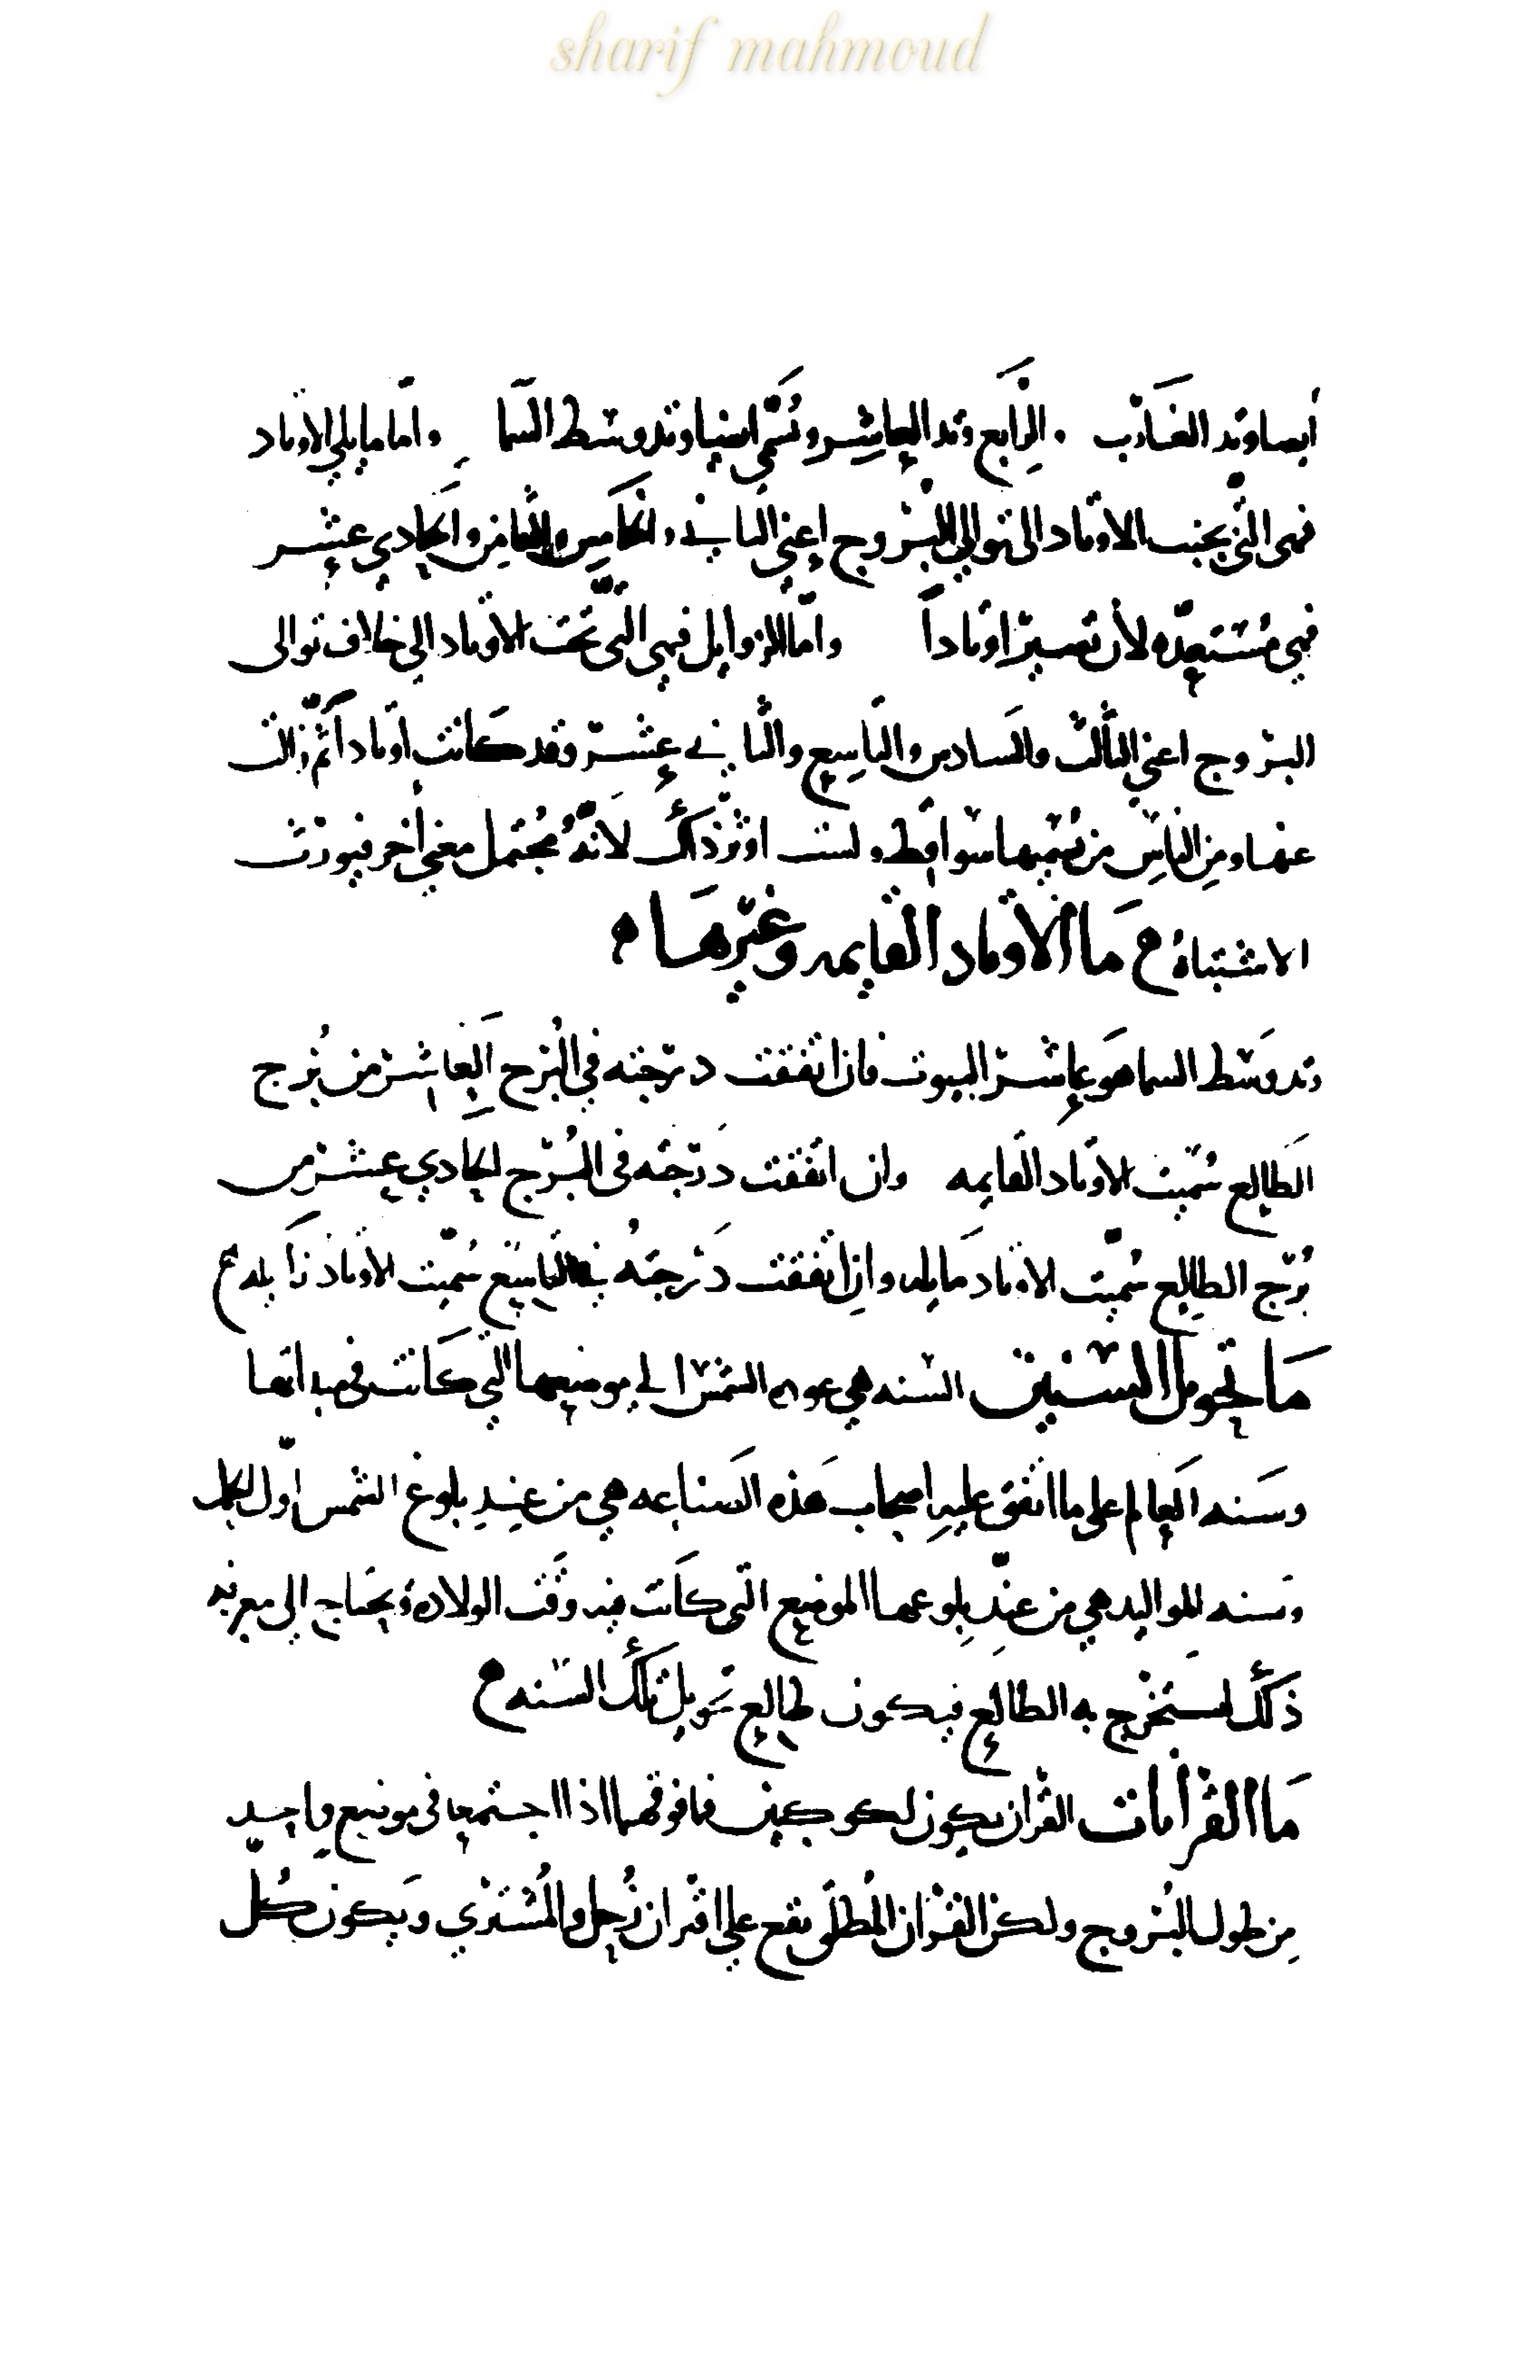 sharif mahmoud
أيضا وتد الغارب . والرابع وتد العاشر وتسمى ايضا وتد وسط السما واما ما يلي الاوتاد
فهي التي بجنب الاوتاد الى توالي البروج اعني الثاني والخامس والثامن والحادي عشر
فهي مستعدّه لأن تصير اوتاداً واما الزوايل فهي التي تحت الاوتاد الى خلاف توالى
البروج اعني الثالث والسادس والتاسع والثاني عشر وقد كانت أوتاداً ثم زالت
عنها ومن الناس من يسميها سواقط ولست اوثر ذلك لأنه مُحتمل معنى أخر فيورث
الاشتباه ما الأوتاد القايمه وغيرها
وتد وسط السما هو عاشر البيوت فان اتفقت درجته في البرج العاشر من بُرج
الطالع سُمّيت الاوتاد القايمه وان اتفقت درجته فى البُرج الحادي عشر من
بُرج الطالع سُمّيت الاوتاد مايله وان اتفقت درجتهُ في التاسع سُمّيت الاوتاد زايله
ما تحويل السنين السنه هي عود الشمس الى موضعها التي كانت في مبدائها
وسنه العالم على ما اتفق عليه اصحاب هذه الصناعه هي من عند بلوغ الشمس اوّل الحمل
وسنه المواليد هي من عند بلوغها الموضع التي كانت فيه وقت الولاده ويحتاج الى معرفه
ذلك ليستخرج به الطالع فيكون طالع تحويل تلك السنه
ما القرانات القران يكون لكوكبين فما فوقهما اذا اجتمعا في موضع واحد
من طول البروج ولكن القران المُطلق يقع على اقتران زُحل والمُشتري ويكون كُلّ